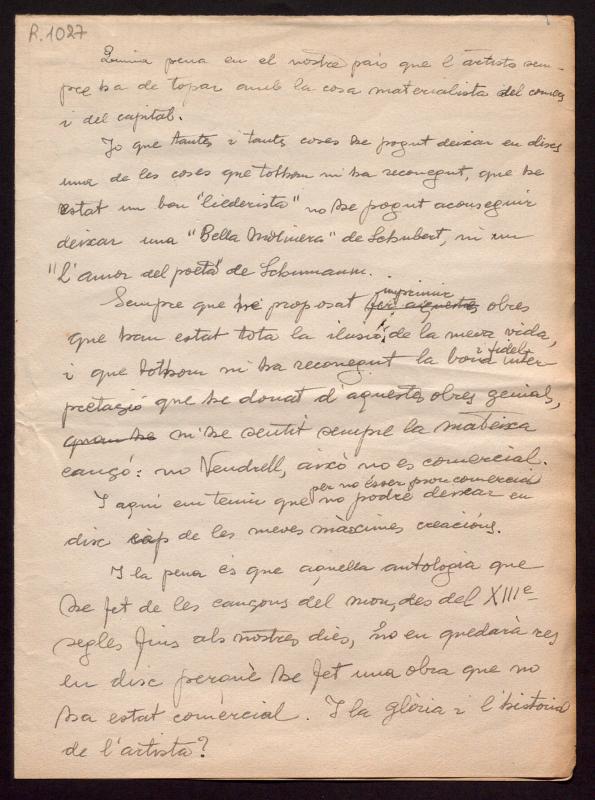 R.1027
Quina pena en el nostre país que l'artista sem-
pre ha de topar amb la cosa materialista del comerç
i del capital.
Jo que tantes i tants coses he pogut deixar en discs
una de les coses que tothom m'ha reconegut, que he
estat un bon "liederista" no he pogut aconseguir
deixar una "Bella Molinera" de Schubert, ni un
"L'amor del poeta" de Schumann.
imprimir
Sempre que he proposat fer aquestes obres
que han estat tota la ilusió de la meva vida,
i fidel
i que tothom m'ha reconegut la bona inter-
pretació que he donat d'aquestes obres genials,
quan he m'he sentit sempre la mateixa
cançó: no Vendrell, això no es comercial.
per no ésser prou comercial
I aquí em tenin que no podré deixar en
disc cap de les meves màximes creacións.
I la pena és que aquella antologia que
he fet de les cançons del mon, des del XIIIe
segles fins als nostres dies, no en quedarà res
en disc perquè he fet una obra que no
ha estat comercial. I la glòria i l'història
de l'artista?